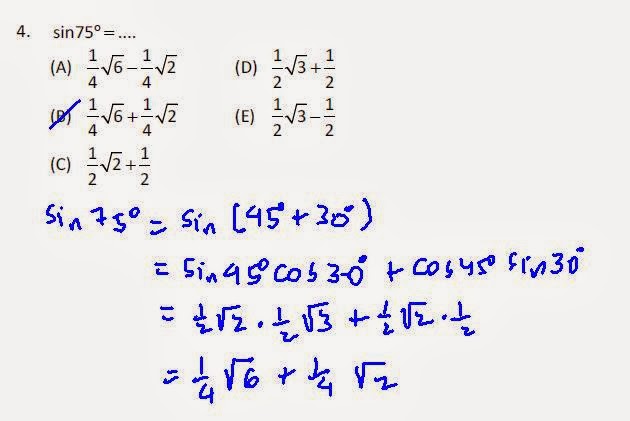 4. sin75° = ....
(A) 1/4√6 − 1/4√2 (D) 1/2√3 + 1/2
(B) 1/4√6 + 1/4√2 (E) 1/2√3 − 1/2
(C) 1/2√2 + 1/2
sin 75° = sin (45° + 30°)
= sin 45° cos 30° + cos 45° sin 30°
= 1/2 √2 . 1/2 √3 + 1/2 √2 . 1/2
= 1/4 √6 + 1/4 √2